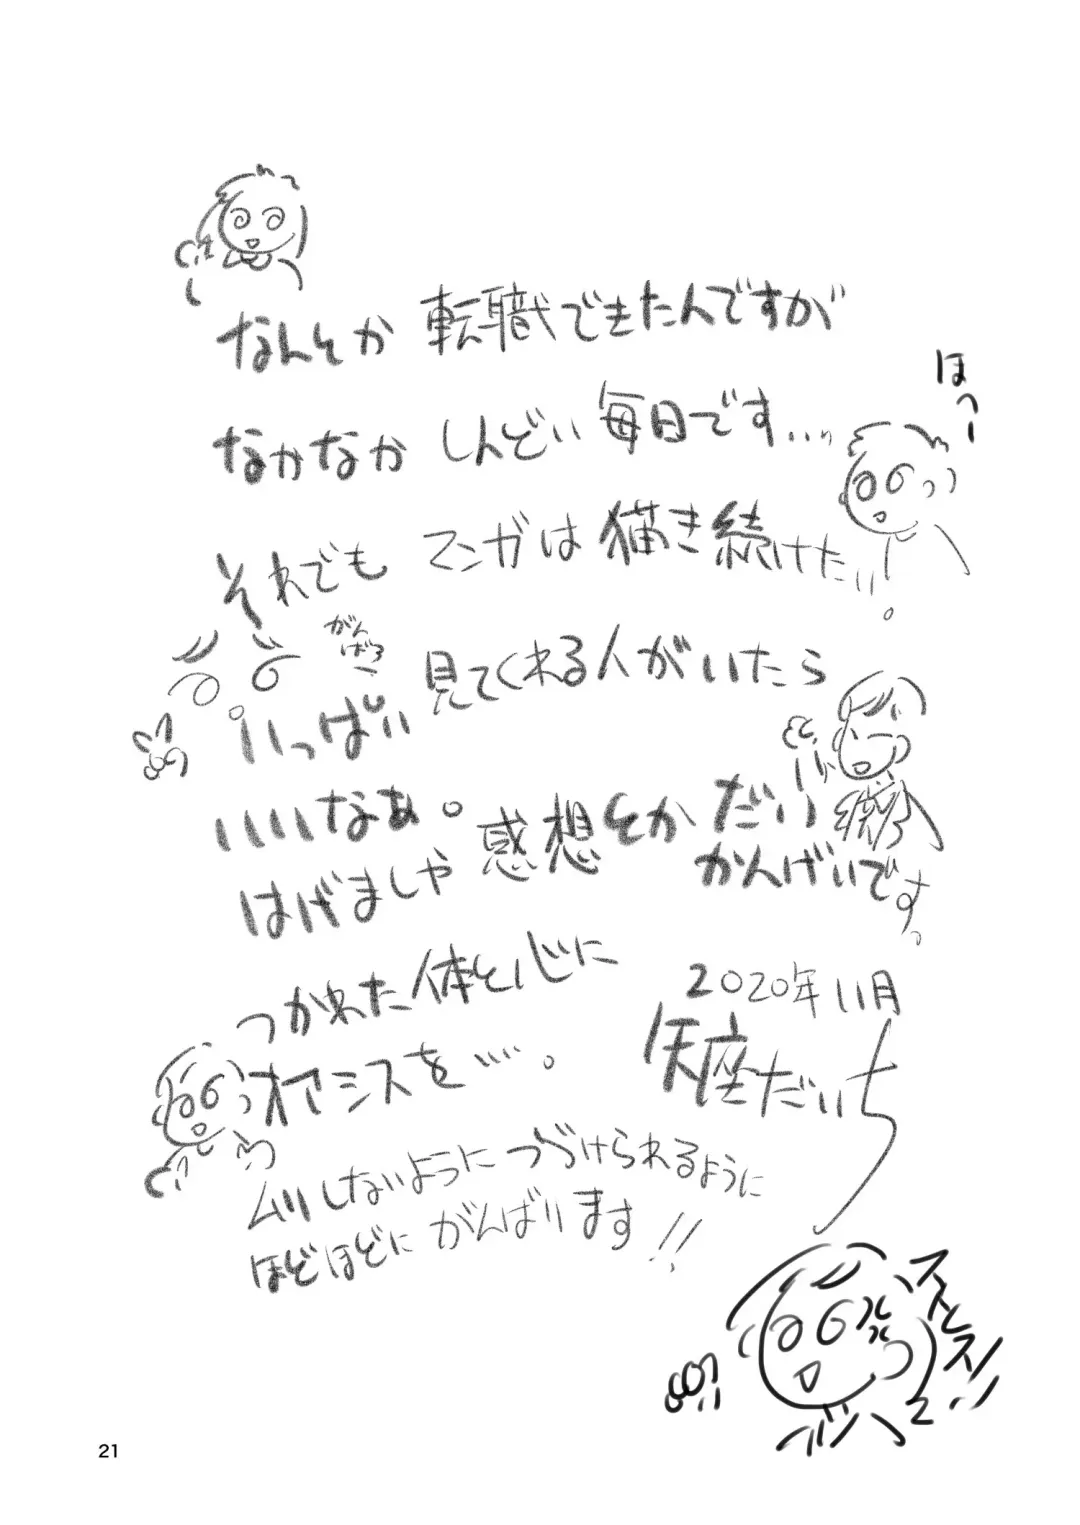 なんとか 転職できたんですが
なかなか しんどい 毎日です...
ほっ
それでも マンガは 描き続けたい
がん
ばろ
見てくれる人がいたら
いっぱい
いいなぁ。
はげましや 感想とか だい
かんげいです。
つかれた 体と心に
オアシスを…。
2020年11月
矢座だいち
ムリしないように つづけられるように
ほどほどに がんばります!!